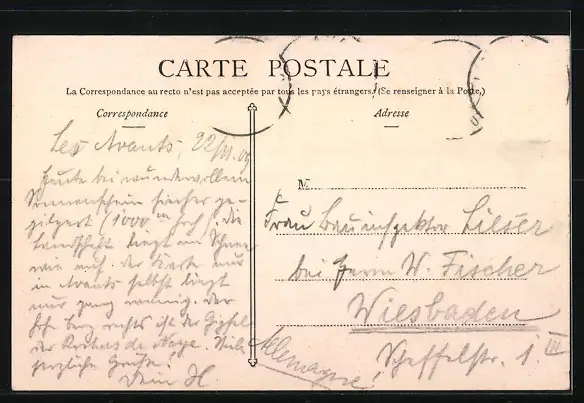 CARTE POSTALE
La Correspondance au recto n'est pas acceptée par tous les pays étrangers. (Se renseigner à la Poste.)
Correspondance
Adresse
Les Avants, 22/
Heute bei wundervollem
Sonnenschein hierher ge-
(1000 m hoch), die
Landschaft liegt im Schnee
wie auf der Karte nur
in Avants selbst liegt
nur ganz wenig. Der
hohe Berg rechts ist der Gipfel
der Rochers de Naye. Viele
herzliche Grüße!
Dein H
M
Frau Bauinspektor
bei Herrn W. Fischer
Wiesbaden
Scheffelstr. 1 III
Allemagne!